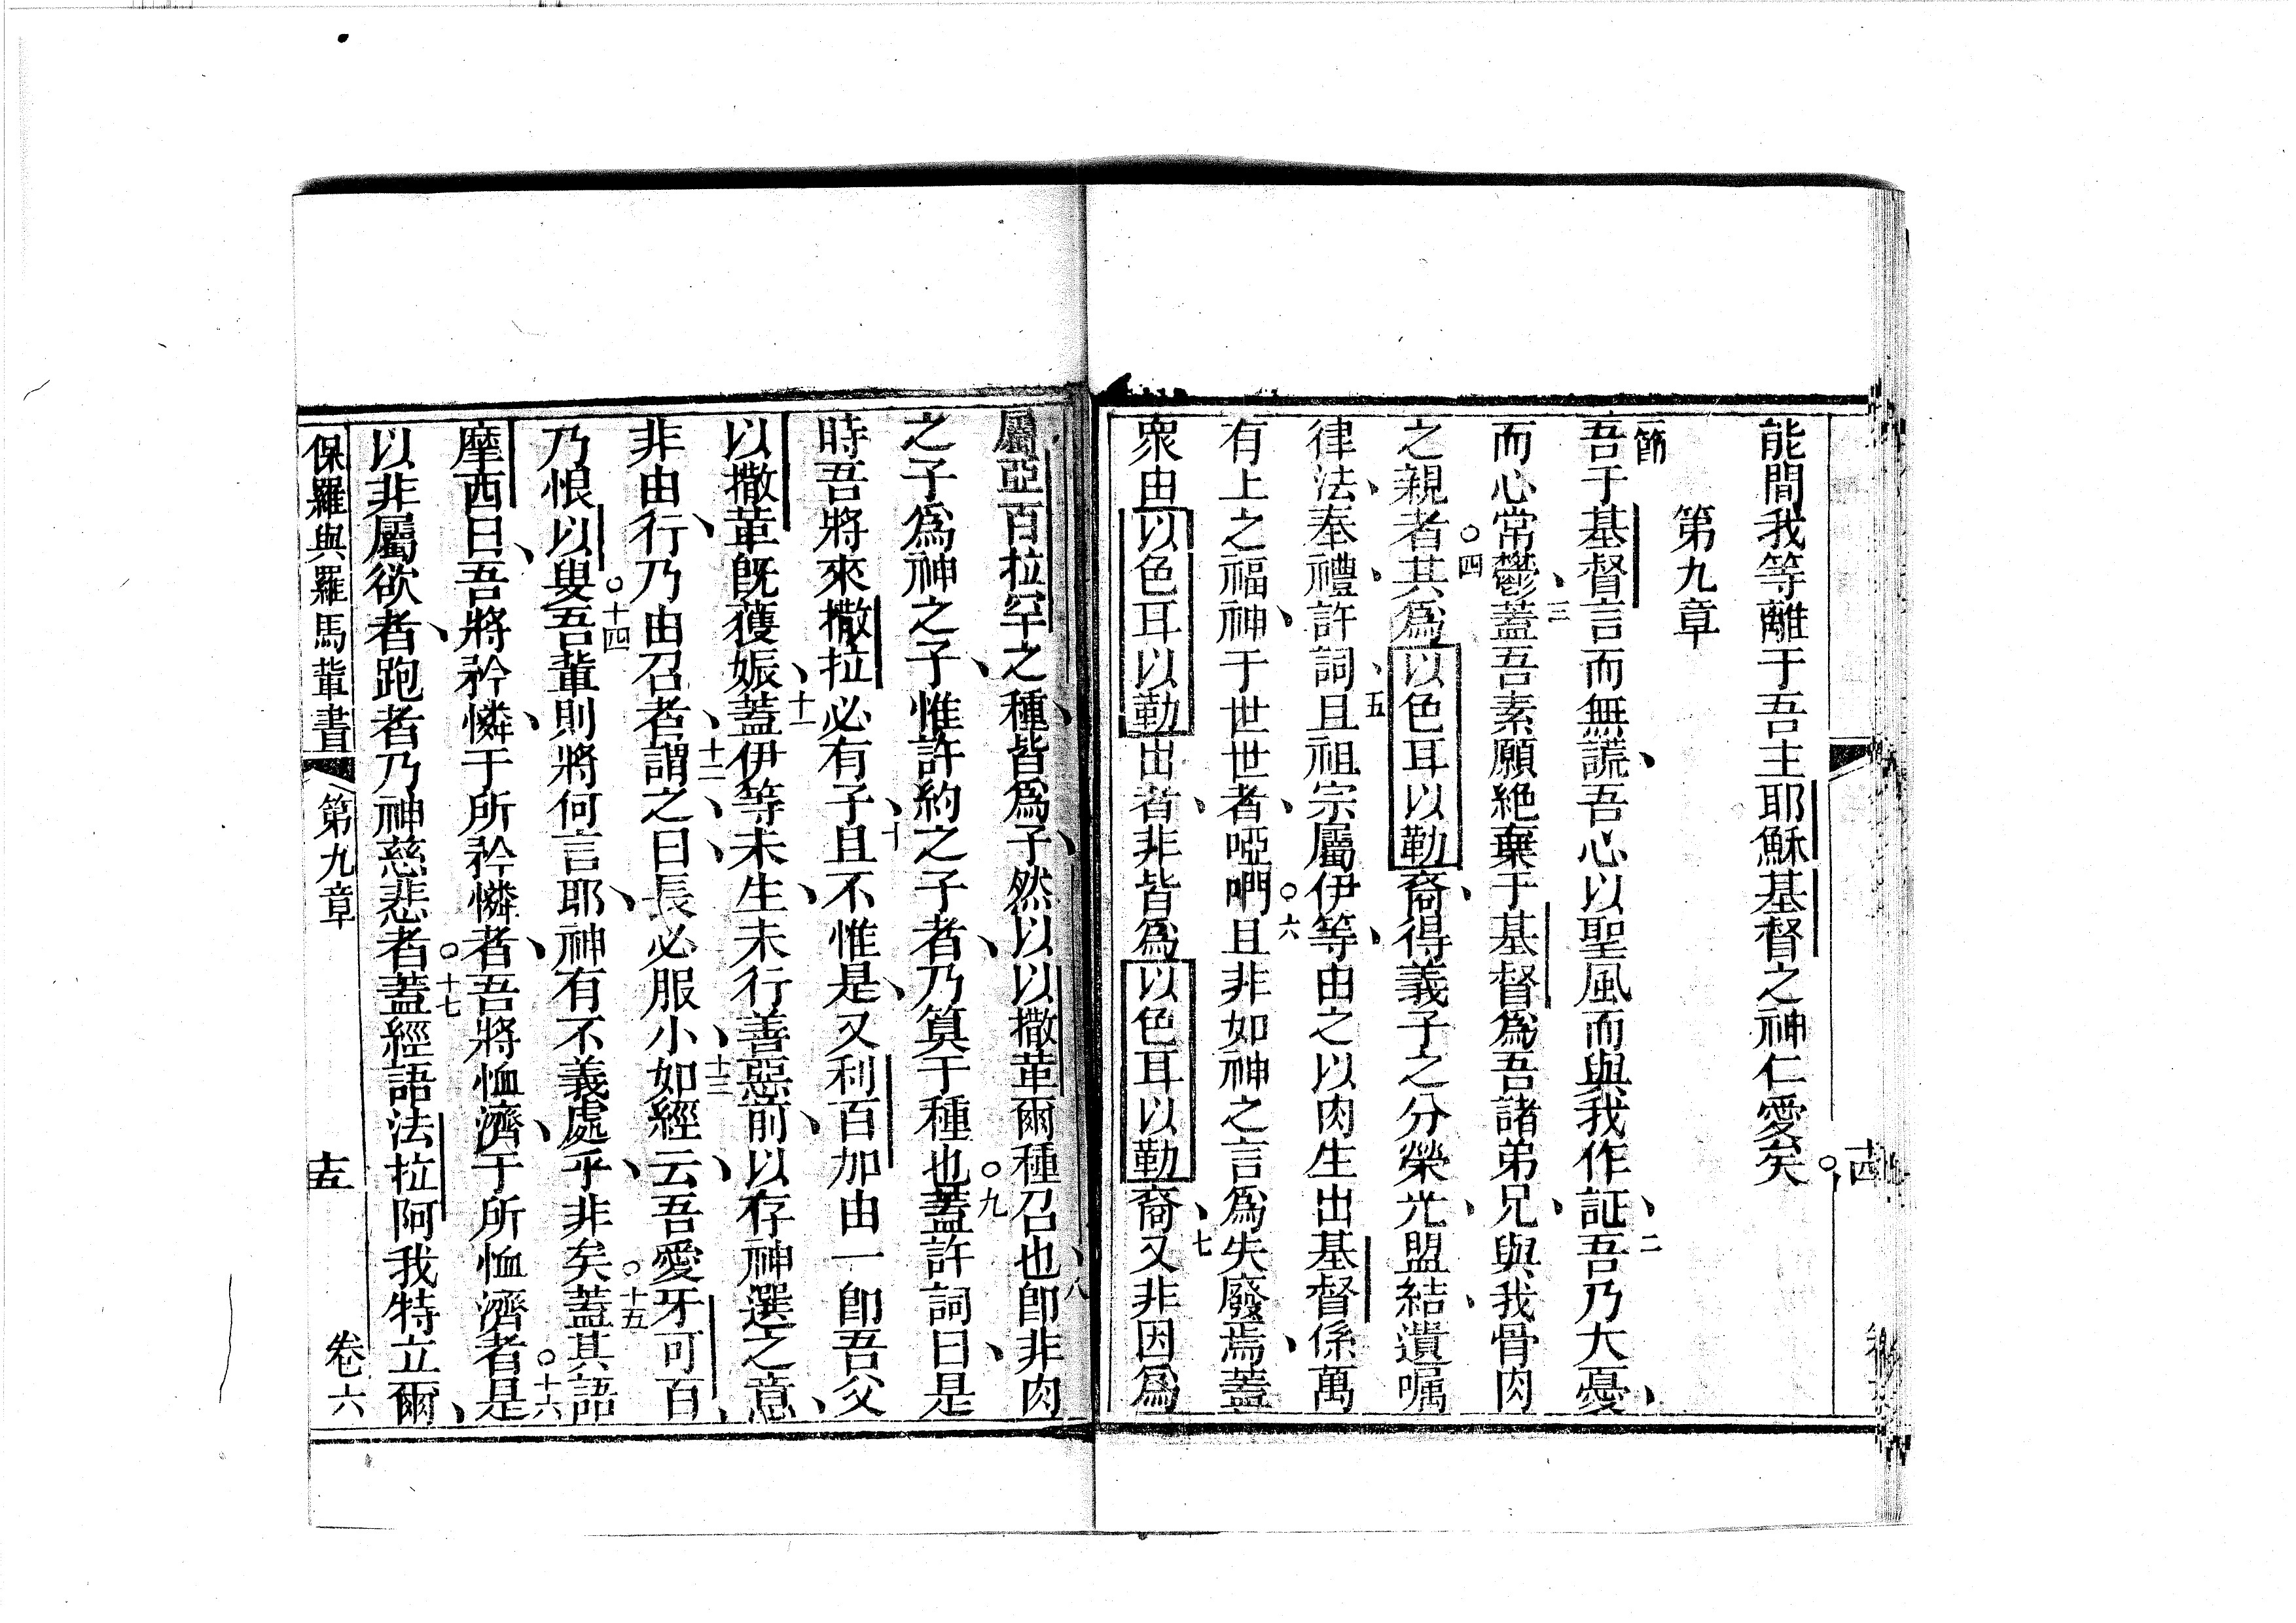 能間我等離于吾主耶穌基督之神仁愛矣
第九章
一節
吾于基督言而無謊吾心以聖風而與我作証吾乃大憂
二
而心常鬱蓋吾素願絶棄于基督爲吾諸弟兄與我骨肉
三
之親者其爲以色耳以勒裔得義子之分榮光盟結遺囑
四
律法奉禮許詞且祖宗屬伊等由之以肉生出基督係萬
五
有上之福神于世世者啞啊且非如神之言爲失廢焉蓋
六
衆由以色耳以勒出者非皆爲以色耳以勒裔又非因爲
七
屬亞百拉罕之種皆爲子然以以撒革爾種召也卽非肉
八
之子爲神之子惟許約之子者乃算于種也蓋許詞曰是
九
時吾將來撒拉必有子且不惟是又利百加由一卽吾父
十
以撒革旣獲娠蓋伊等未生未行善惡前以存神選之意
十一
非由行乃由召者謂之曰長必服小如經云吾愛牙可百
十二
十三
乃恨以叟吾輩則將何言耶神有不義處乎非矣蓋其語
十四
十五
摩西曰吾將矜憐于所矜憐者吾將恤濟于所恤濟者是
十六
以非屬欲者跑者乃神慈悲者蓋經語法拉阿我特立爾
十七
保羅與羅馬輩書 第九章 十五 卷六